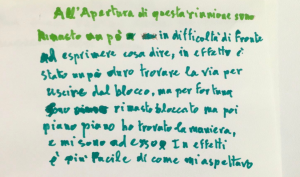 All'Apertura di questa riunione sono
rimasto un pò in difficoltà di fronte
ad esprimere cosa dire, in effetti è
stato un pò duro trovare la via per
uscire dal blocco, ma per fortuna
sono rimasto bloccato ma poi
piano piano ho trovato la maniera,
e mi sono ad esso In effetti
è più facile di come mi aspettavo